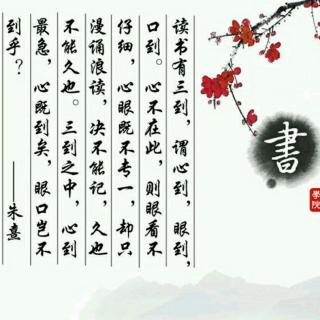 读书有三到，谓心到，眼到，
口到。心不在此，则眼看不
仔细，心眼既不专一，却只
漫诵浪读，决不能记，久也
不能久也。三到之中，心到
最急，心既到矣，眼口岂不
到乎？
——朱熹
書
學院